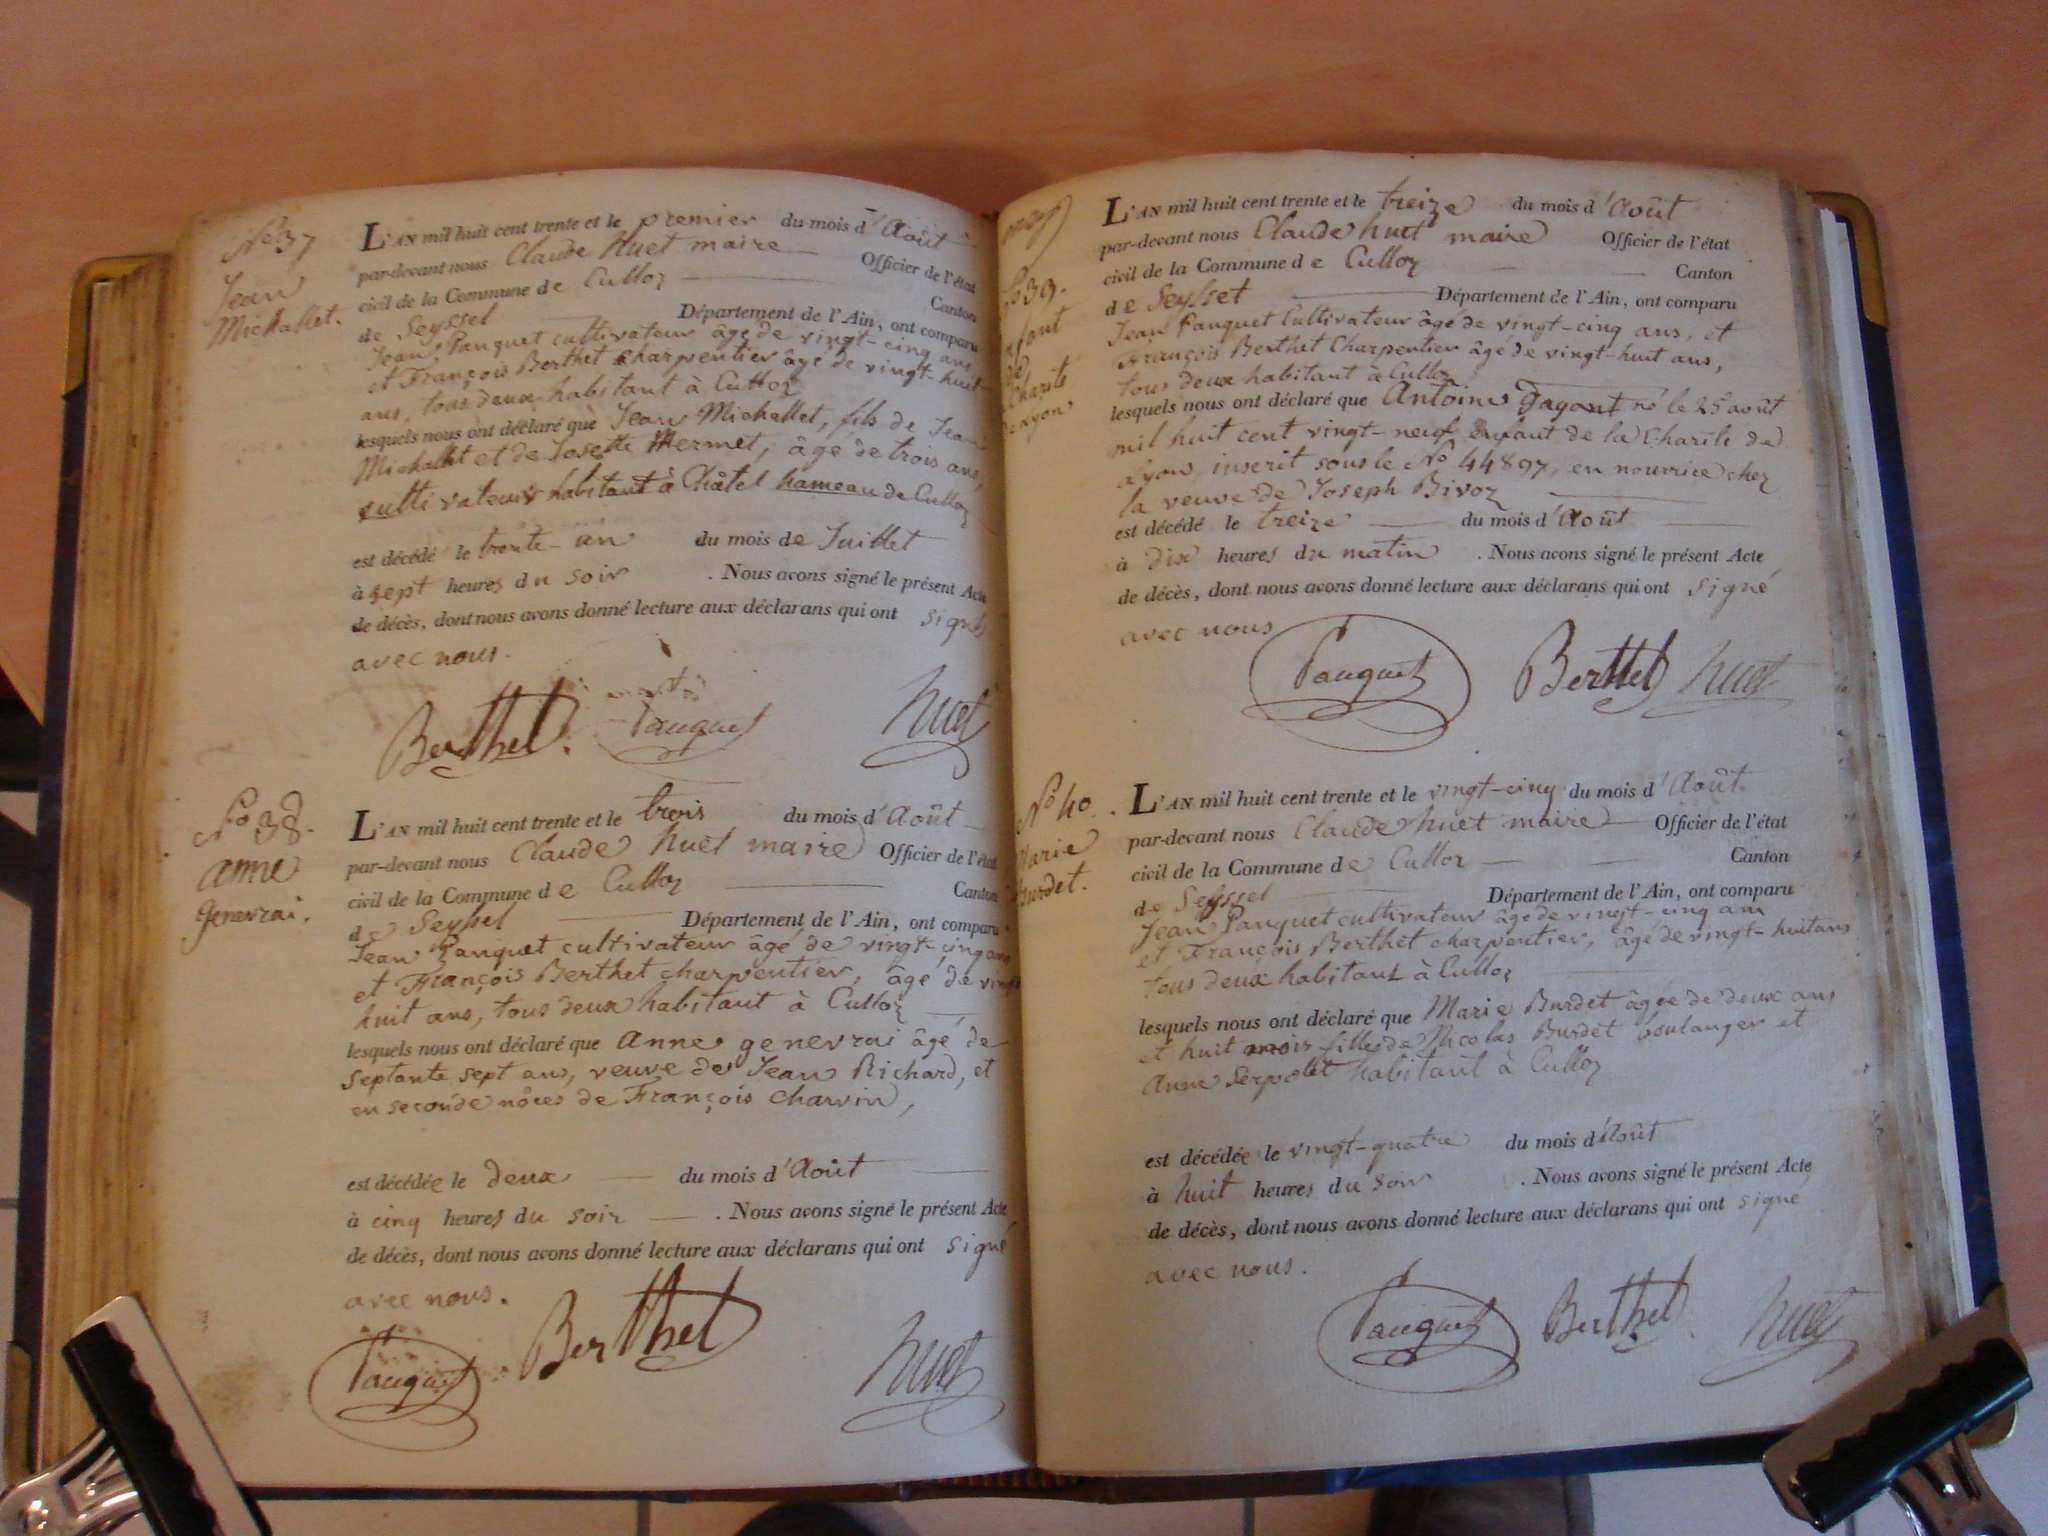 No 37
Jean
Michallet.
L'AN mil huit cent trente et le premier du mois d'Août
par-devant nous Claude huet maire Officier de l'état
civil de la Commune de Culloz Canton
de Seyssel Département de l'Ain, ont comparu
Jean Pauquet cultivateur âgé de vingt-cinq ans
et François Berthet charpentier âgé de vingt-huit
ans, tous deux habitant à Culloz
lesquels nous ont déclaré que Jean Michallet, fils de Jean
Michallet et de Josette Mermet, âgé de trois ans,
cultivateurs habitant à Châtel hameau de Culloz
est décédé le trente-un du mois de Juillet
à sept heures du soir . Nous avons signé le présent Acte
de décès, dont nous avons donné lecture aux déclarans qui ont signé
avec nous.
Berthet. Pauquet huet
No 38.
anne
genevrai.
L'AN mil huit cent trente et le trois du mois d'Août
par-devant nous Claude huet maire Officier de l'état
civil de la Commune de Culloz Canton
de Seyssel Département de l'Ain, ont comparu
Jean Pauquet cultivateur âgé de vingt-cinq ans
et François Berthet charpentier, âgé de vingt
huit ans, tous deux habitant à Culloz
lesquels nous ont déclaré que anne genevrai âgé de
septante sept ans, veuve de Jean Richard, et
en seconde nôces de François charvin,
est décédée le deux du mois d'Août
à cinq heures du soir . Nous avons signé le présent Acte
de décès, dont nous avons donné lecture aux déclarans qui ont signé
avec nous.
Pauquet Berthet huet
No 39.
enfant
de
Charité
de Lyon
L'AN mil huit cent trente et le treize du mois d'Août
par-devant nous Claude huet maire Officier de l'état
civil de la Commune de Culloz Canton
de Seyssel Département de l'Ain, ont comparu
Jean Pauquet Cultivateur âgé de vingt-cinq ans, et
François Berthet Charpentier âgé de vingt-huit ans,
tous deux habitant à Culloz
lesquels nous ont déclaré que Antoine gagont né le 25 août
mil huit cent vingt-neuf enfant de la Charité de
Lyon, inscrit sous le No 44897, en nourrice chez
la veuve de Joseph Bivoz
est décédé le treize du mois d'Août
à dix heures du matin . Nous avons signé le présent Acte
de décès, dont nous avons donné lecture aux déclarans qui ont signé
avec nous
Pauquet Berthet huet
No 40.
Marie
Burdet.
L'AN mil huit cent trente et le vingt-cinq du mois d'Août.
par-devant nous Claude huet maire Officier de l'état
civil de la Commune de Culloz Canton
de Seyssel Département de l'Ain, ont comparu
Jean Pauquet cultivateur âgé de vingt-cinq ans
et François Berthet charpentier, âgé de vingt-huit ans
tous deux habitant à Culloz
lesquels nous ont déclaré que Marie Burdet âgée de deux ans
et huit mois fille de Nicolas Burdet boulanger et
anne Serpolet habitant à Culloz
est décédée le vingt-quatre du mois d'Août
à huit heures du soir . Nous avons signé le présent Acte
de décès, dont nous avons donné lecture aux déclarans qui ont signé
avec nous.
Pauquet Berthet huet